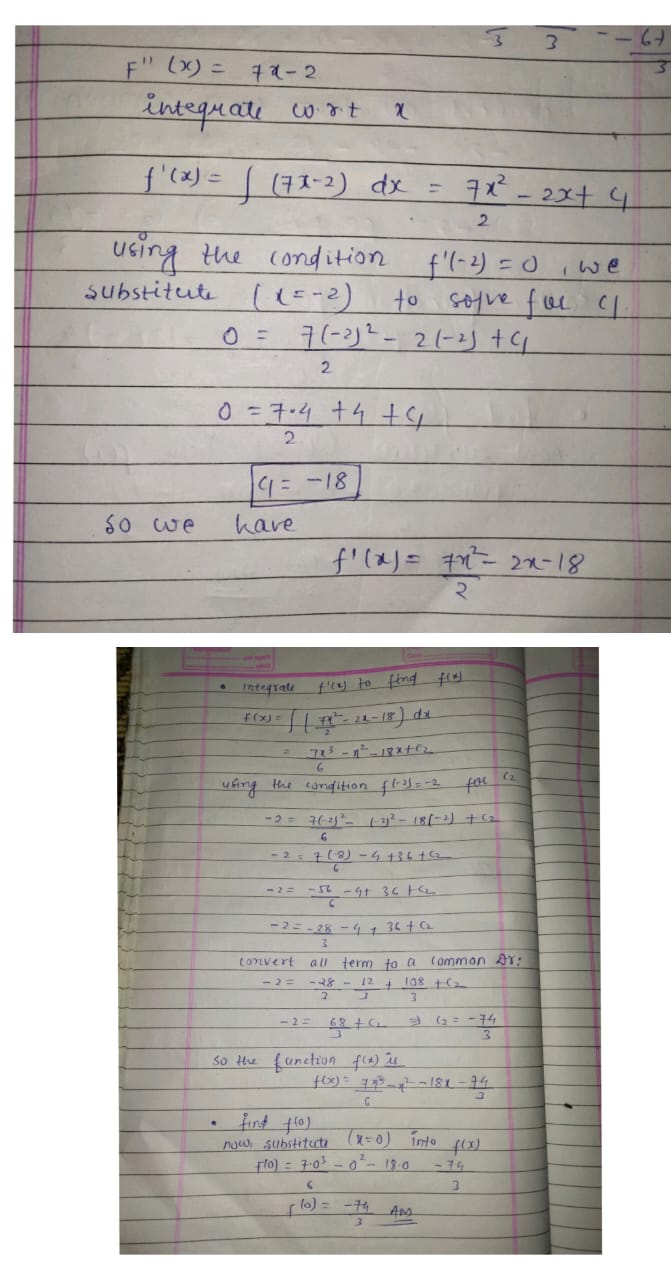 3 3 - - 67
3
F'' (x) = 7x-2
integrate w.r.t x
f'(x) = ∫ (7x-2) dx = 7x²/2 - 2x + C₁
using the condition f'(-2) = 0, we
substitute (x=-2) to solve for C₁
0 = 7(-2)²/2 - 2(-2) + C₁
0 = 7·4/2 + 4 + C₁
C₁ = -18
so we have
f'(x) = 7x²/2 - 2x-18
• integrate f'(x) to find f(x)
f(x) = ∫ (7x²/2 - 2x-18) dx
= 7x³/6 - x² - 18x + C₂
using the condition f(-2) = -2 for C₂
-2 = 7(-2)²/6 - (-2)² - 18(-2) + C₂
-2 = 7(-8)/6 - 4 + 36 + C₂
-2 = -56/6 - 4 + 36 + C₂
-2 = -28/3 - 4 + 36 + C₂
convert all term to a common Dr:
-2 = -28/3 - 12/3 + 108/3 + C₂
-2 = 68/3 + C₂ ⇒ C₂ = -74/3
so the function f(x) is
f(x) = 7x³/6 - x² - 18x - 74/3
• find f(0)
now substitute (x=0) into f(x)
f(0) = 7·0³/6 - 0² - 18·0 - 74/3
f(0) = -74/3 Ans